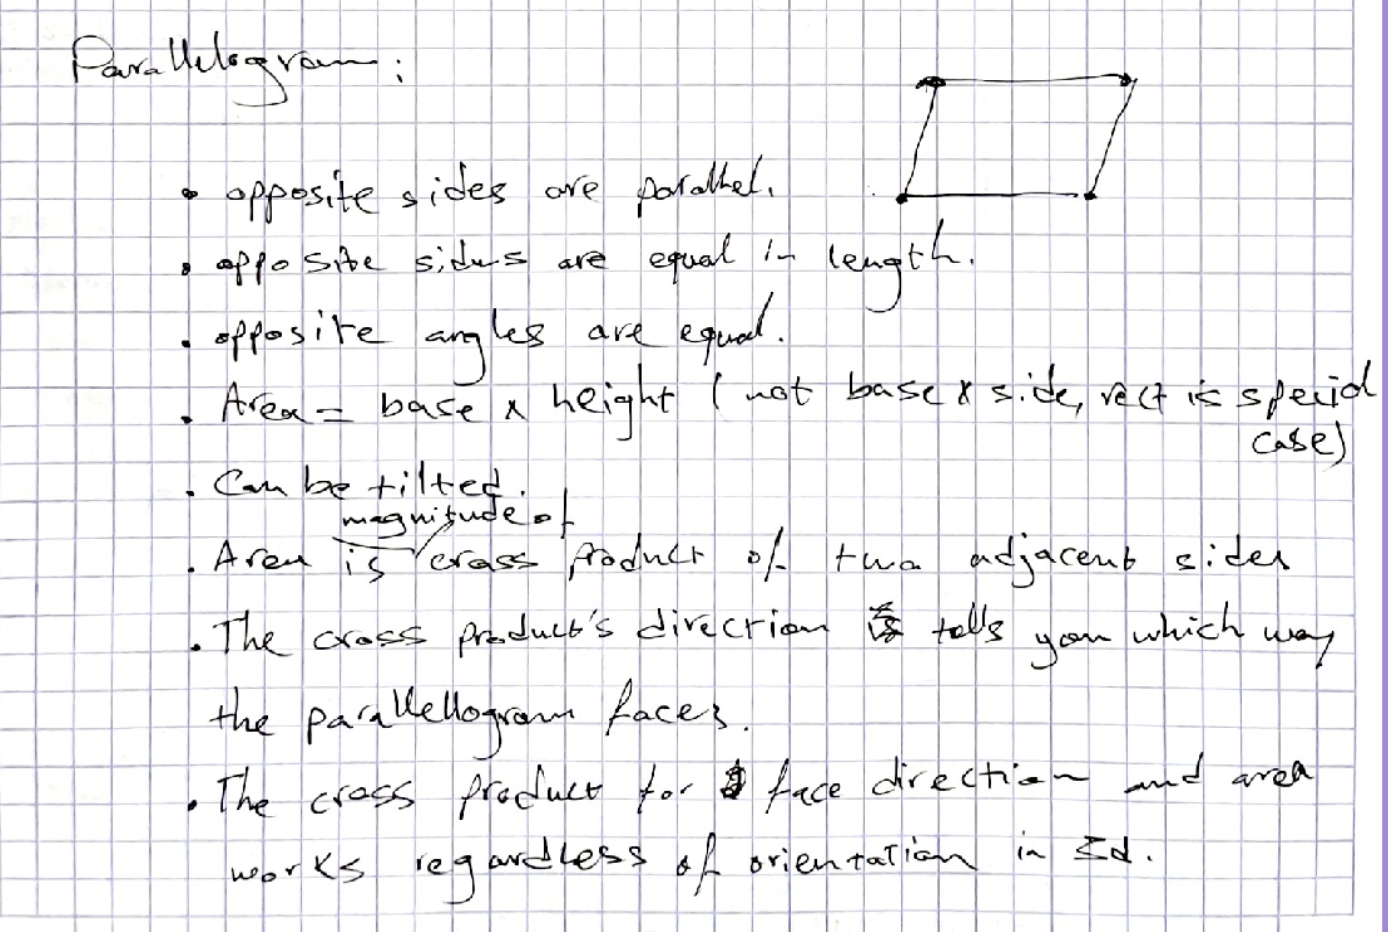 Parallelogram:
• opposite sides are parallel.
• opposite sides are equal in length.
• opposite angles are equal.
• Area = base x height (not base x side, rect is special
case)
• Can be tilted.
magnitude of
• Area is cross product of two adjacent sides
• The cross product's direction tells you which way
the parallellogram faces.
• The cross product for face direction and area
works regardless of orientation in 3d.